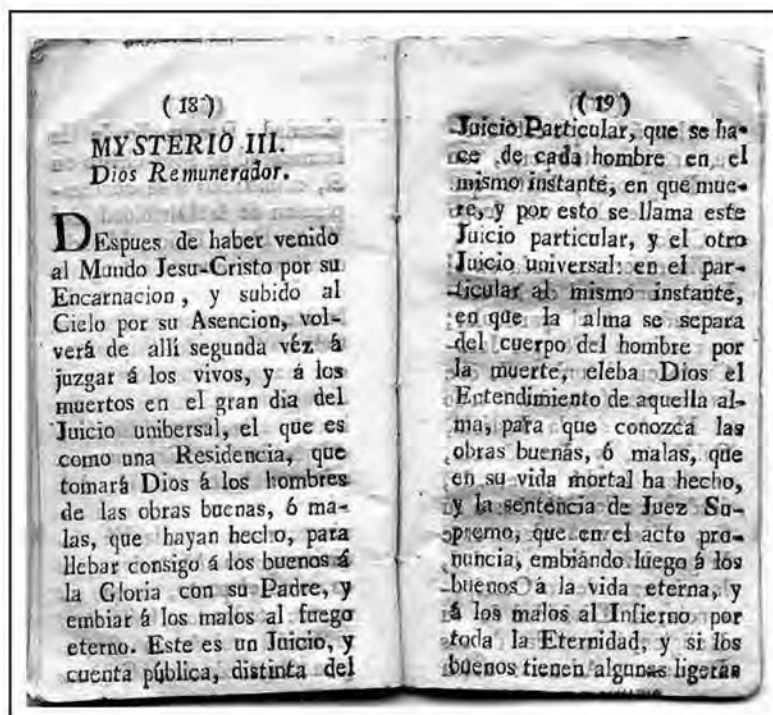 (18)
MYSTERIO III.
Dios Remunerador.
DEspues de haber venido
al Mundo Jesu-Cristo por su
Encarnacion, y subido al
Cielo por su Asencion, vol-
verá de allí segunda véz á
juzgar á los vivos, y á los
muertos en el gran dia del
Juicio unibersal, el que es
como una Residencia, que
tomará Dios á los hombres
de las obras buenas, ó ma-
las, que hayan hecho, para
llebar consigo á los buenos á
la Gloria con su Padre, y
embiar á los malos al fuego
eterno. Este es un Juicio, y
cuenta pública, distinta del
(19)
Juicio Particular, que se ha-
ce de cada hombre en el
mismo instante, en que mue-
re, y por esto se llama este
Juicio particular, y el otro
Juicio universal: en el par-
ticular al mismo instante,
en que la alma se separa
del cuerpo del hombre por
la muerte, eleba Dios el
Entendimiento de aquella al-
ma, para que conozca las
obras buenas, ó malas, que
en su vida mortal ha hecho,
y la sentencia de Juez Su-
premo, que en el acto pro-
nuncia, embiando luego á los
buenos á la vida eterna, y
á los malos al Infierno por
toda la Eternidad, y si los
buenos tienen algunas ligeras